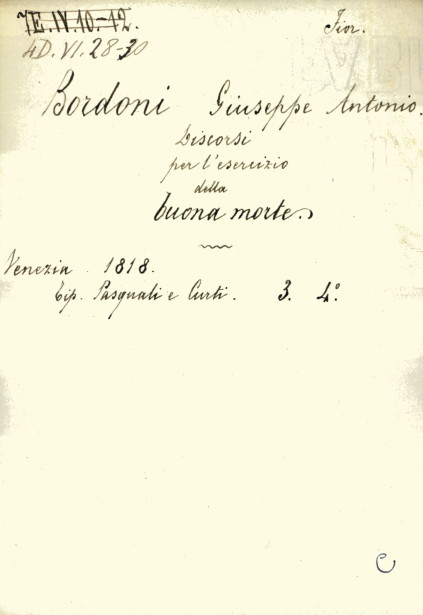 7E.IV.10.-12.
Fior.
4D.VI.28-30
Bordoni Giuseppe Antonio.
Discorsi
per l'esercizio
della
buona morte.
Venezia. 1818.
Tip. Pasquali e Curti. 3. 4°.
C